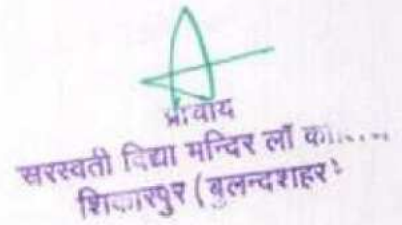 प्राचार्य
सरस्वती विद्या मन्दिर लॉ
शिकारपुर (बुलन्दशहर)